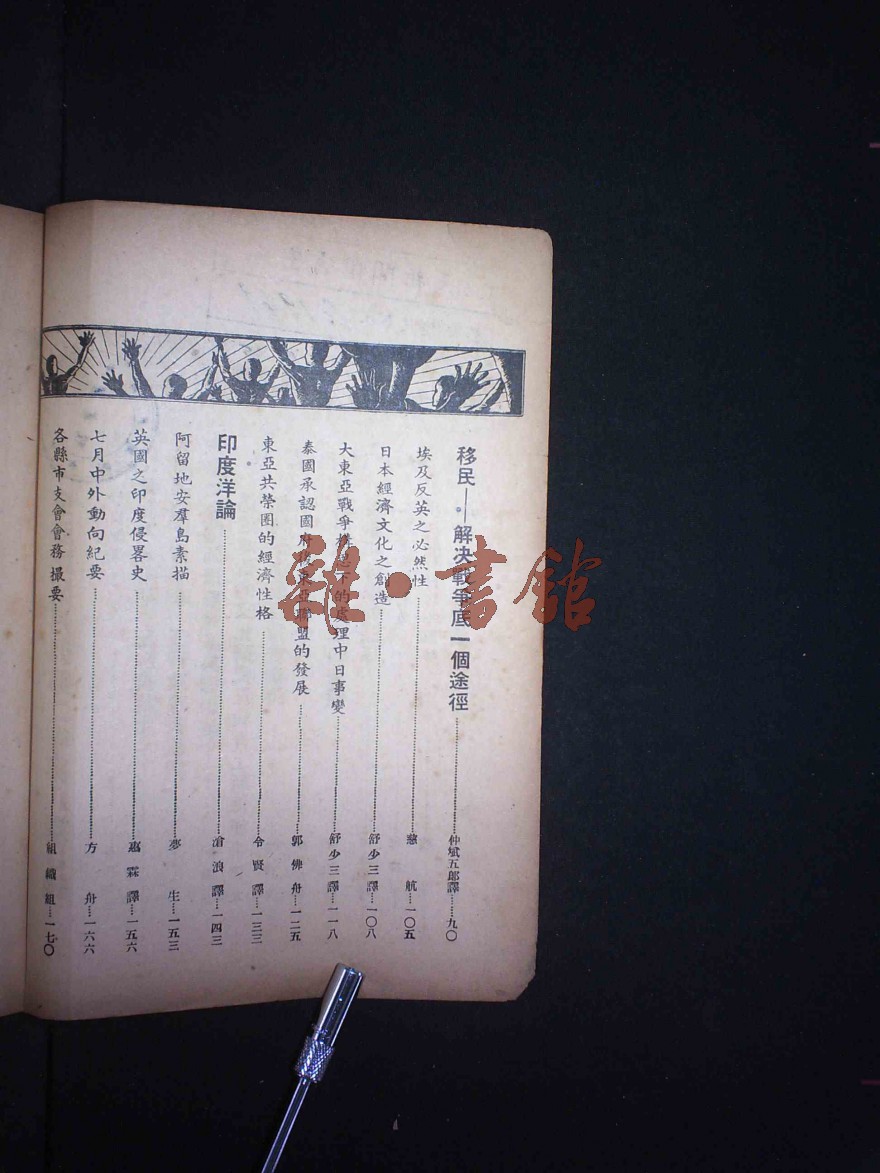 移民——解決戰爭底一個途徑……仲斌五郎譯……九〇
埃及反英之必然性……慈航……一〇五
日本經濟文化之創造……舒少三譯……一〇八
大東亞戰爭下的處理中日事變……舒少三譯……一一八
泰國承認國府東亞聯盟的發展……郭佛舟……一二五
東亞共榮圈的經濟性格……令賢譯……一三三
印度洋論……滄浪譯……一四三
阿留地安羣島素描……夢生……一五三
英國之印度侵畧史……惠霖譯……一五六
七月中外動向紀要……方舟……一六六
各縣市支會會務撮要……組織組……一七〇
雜·書館